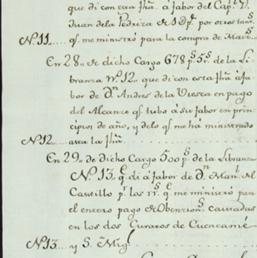 que di con esta fha. a fabor del Cap.n D.n
Juan de la Pedriza
N.º 11 q.e me ministró para la compra de
En 28 de dicho Cargo 678 p.s 5 r.s de la Li-
branza N.º 12. que di con esta fha. á fa-
bor de D.n Andres de la Uresca en pago
del Alcance q.e tubo á su fabor en prin-
cipios de año, y de lo q.e me há ministrado
N.º 12 asta la fha.
En 29 de dicho Cargo 500 p.s de la Libran.
N.º 13. q.e di á fabor de D.n Man.l Al
Castillo p.r los r.s q.e me ministró para
el entero pago de Obencion.s causadas
en los dos Curatos de Cuencamé
N.º 13 y S. Mig.l